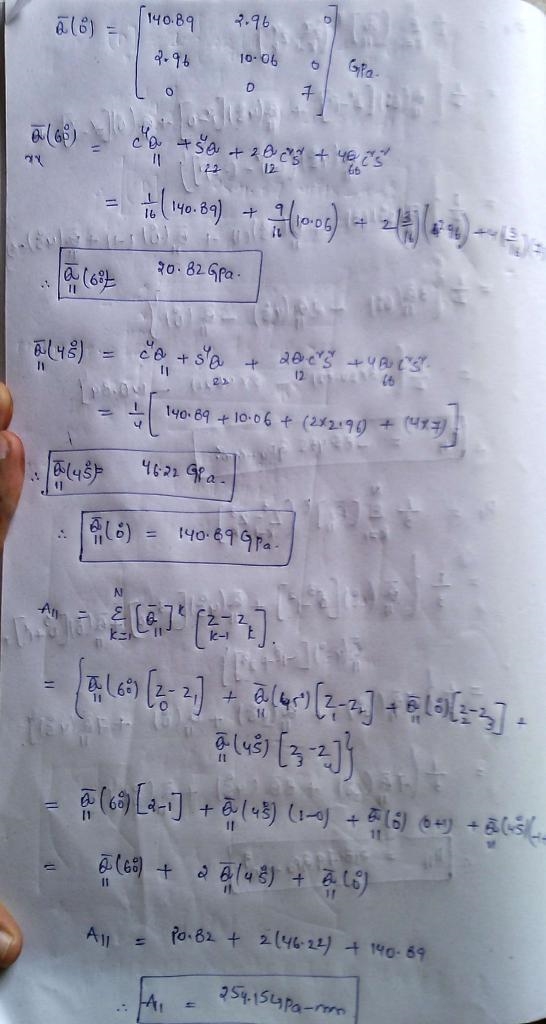 Q̄(0°) = [140.89 2.96 0
2.96 10.06 0
0 0 7] GPa.
Q̄xx(60°) = c⁴Q11 + s⁴Q22 + 2Q12 c²s² + 4Q66 c²s²
= 1/16 (140.89) + 9/16 (10.06) + 2(3/16)(2.96) + 4(3/16)(7)
∴ Q̄11(60°) = 20.82 GPa.
Q̄11(45°) = c⁴Q11 + s⁴Q22 + 2Q12 c²s² + 4Q66 c²s².
= 1/4 [140.89 + 10.06 + (2×2.96) + (4×7)]
∴ Q̄11(45°) = 46.22 GPa.
∴ Q̄11(0°) = 140.89 GPa.
A11 = Σ k=1 N [Q̄11]k [zk-1 - zk].
= {Q̄11(60°)[z0 - z1] + Q̄11(45°)[z1 - z2] + Q̄11(0°)[z2 - z3] +
Q̄11(45°)[z3 - z4]}
= Q̄11(60°)[2-1] + Q̄11(45°)(1-0) + Q̄11(0°)(0+1) + Q̄11(45°)(-1+
= Q̄11(60°) + 2Q̄11(45°) + Q̄11(0°)
A11 = 20.82 + 2(46.22) + 140.89
∴ A11 = 254.15 GPa-mm